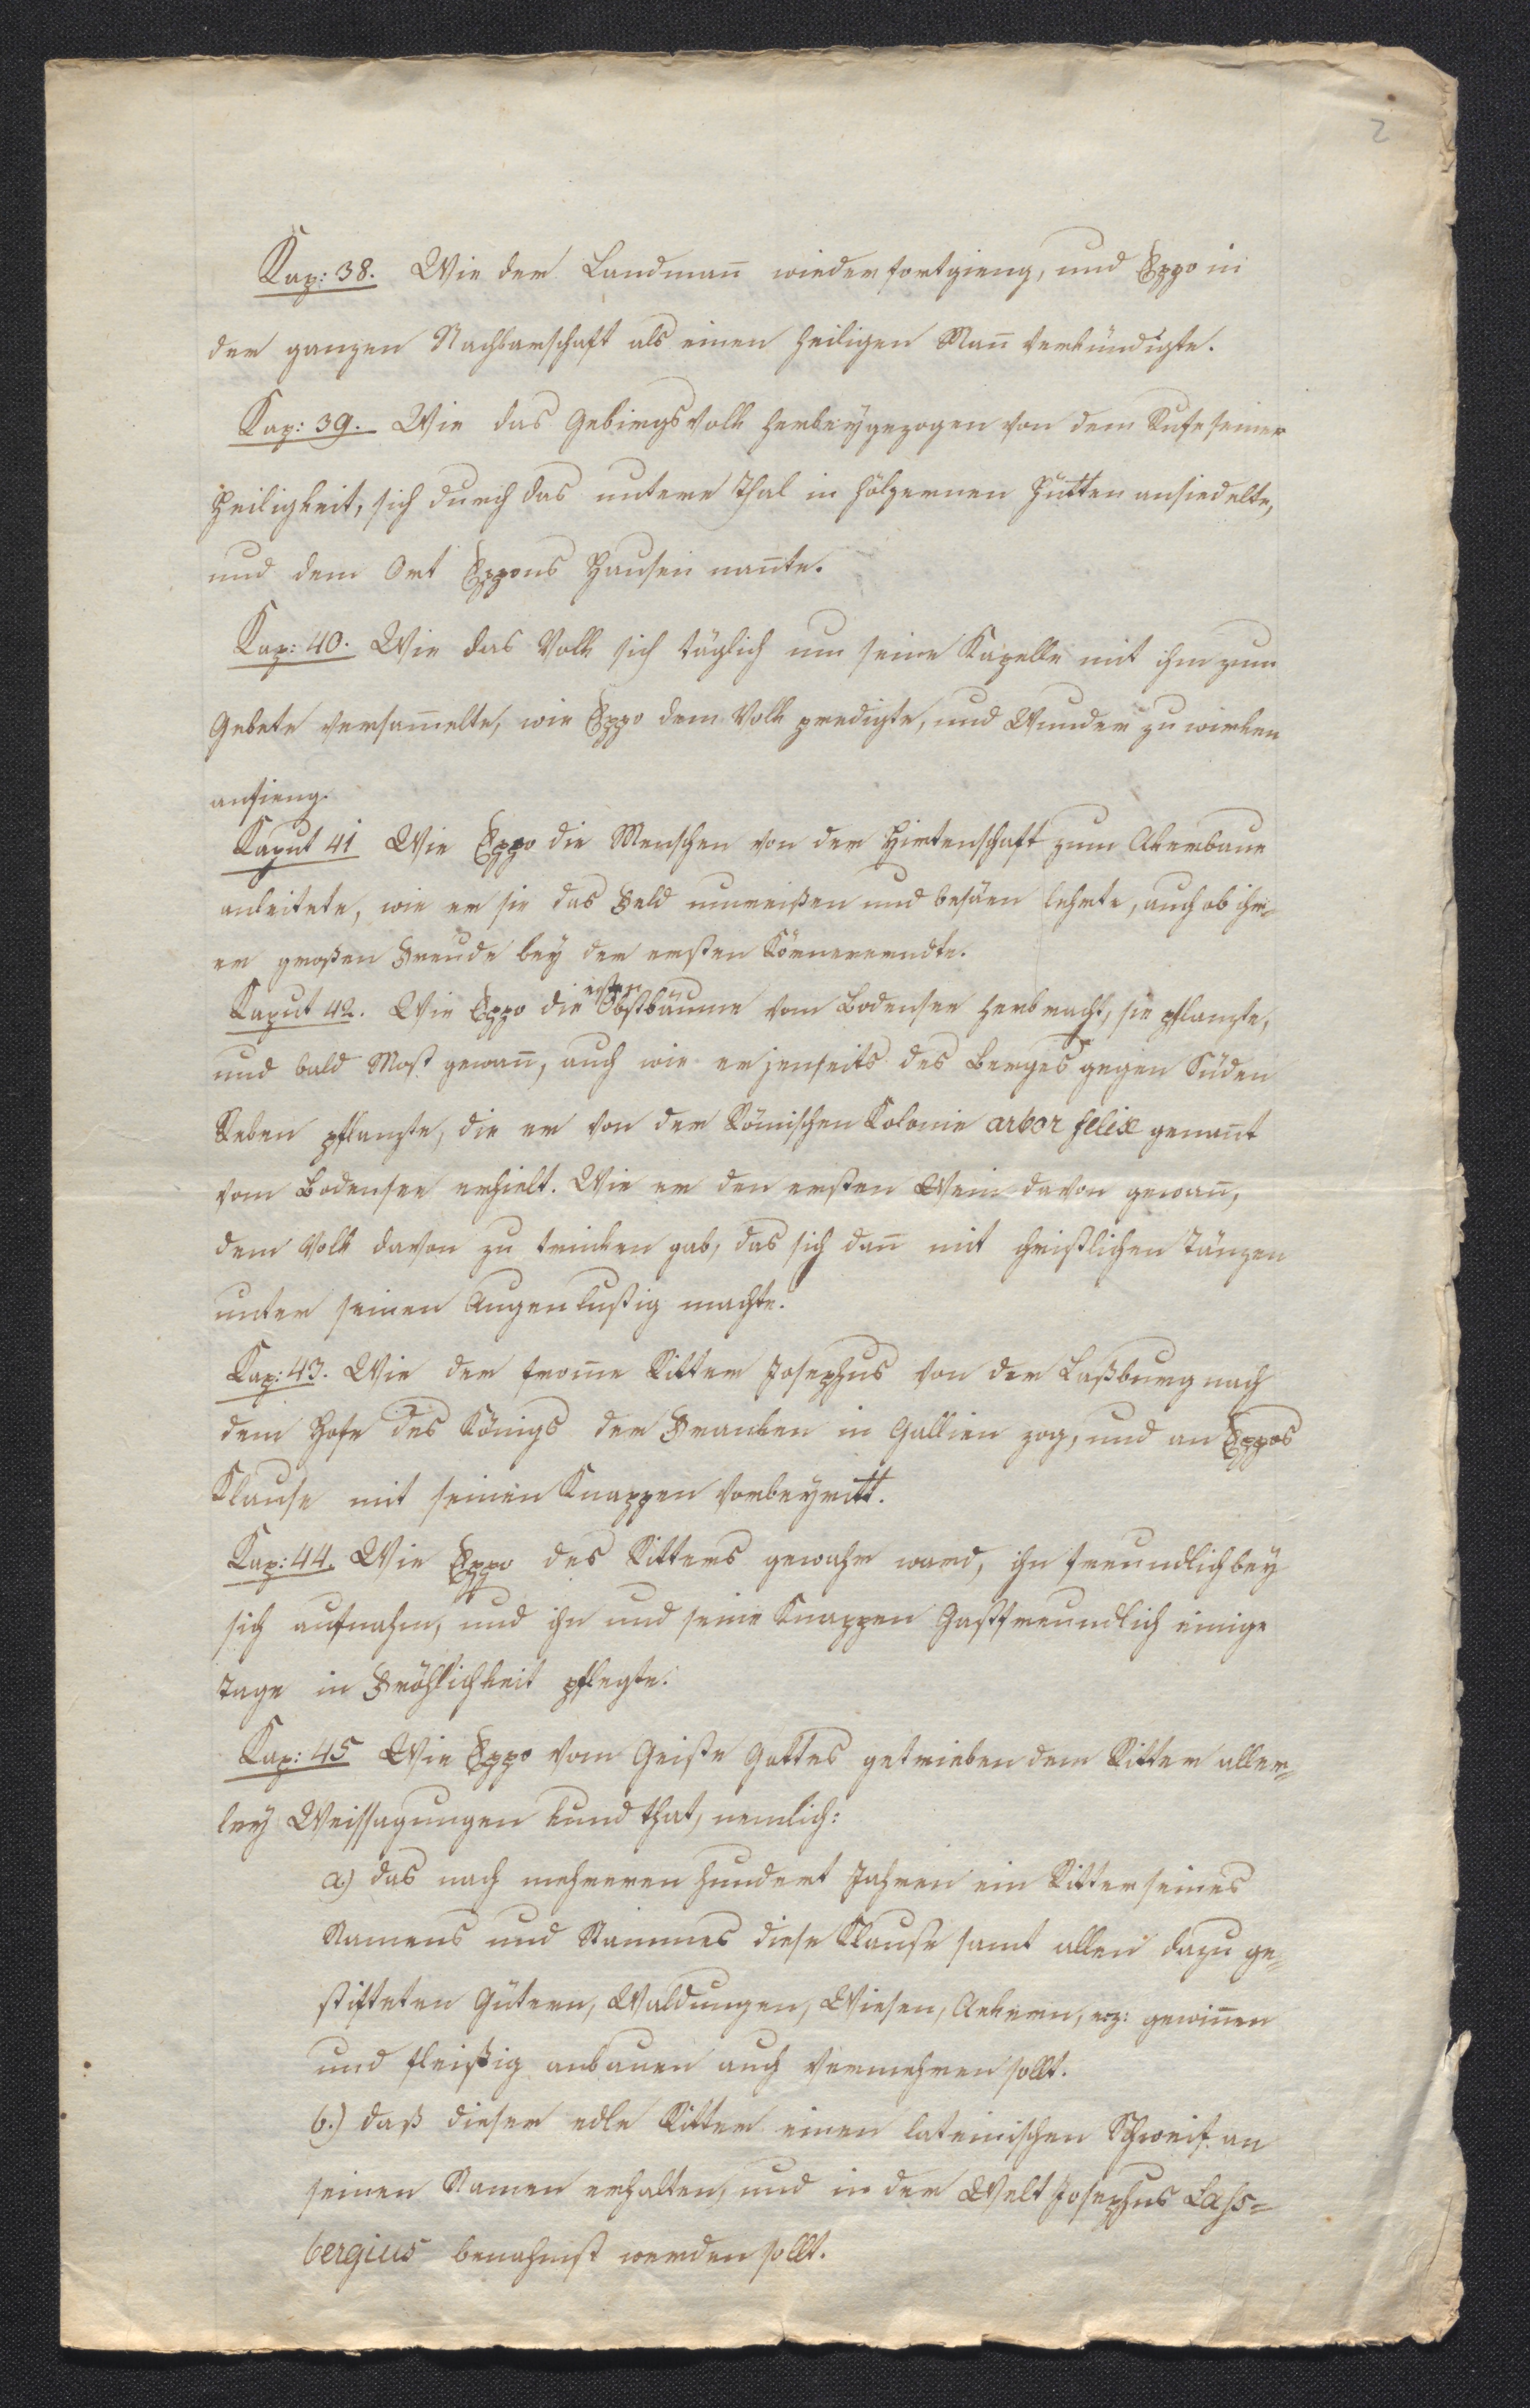 2
Kap: 38. Wie der Landmañ wieder fortgieng, und Eppo in
der ganzen Nachbarschaft als einen heiligen Mañ verkündigte.
Kap: 39. Wie das Gebirgsvolk herbeygezogen von dem Rufe seiner
Heiligkeit, sich durch das untere Thal in hölzernen Hütten ansiedelte,
und dem Ort Eppons Hausen nañte.
Kap: 40. Wie das Volk sich täglich um seine Kapelle mit ihm zum
Gebete versam̄elte, wie Eppo dem Volk predigte, und Wunder zu wirken
anfieng.
Kaput 41 Wie Eppo die Menschen von der Hirtenschaft zum Akerbaue
anleitete, wie er sie das Feld umreißen und besäen lehrte, auch ob ihr-
er großen Freude bey der ersten Körnererndte.
Kaput 42. Wie Eppo die ersten Obstbäume vom Bodensee herbracht, sie pflanzte,
und bald Most gewañ, auch wie er jenseits des Berges gegen Süden
Reben pflanzte, die er von der Römischen Kolonie arbor felix genañt
vom Bodensee erhielt. Wie er den ersten Wein davon gewañ,
dem Volk davon zu trinken gab, das sich dañ mit christlichen Tänzen
unter seinen Augen lustig machte.
Kap: 43. Wie der from̄e Ritter Josephus von der Laßburg nach
dem Hofe des Königs der Franken in Gallien zog, und an Eppos
Klause mit seinen Knappen vorbeyritt.
Kap: 44. Wie Eppo des Ritters gewahr ward, ihn freundlich bey
sich aufnahm, und ihn und seine Knappen Gastfreundlich einige
Tage in Fröhlichkeit pflegte.
Kap: 45 Wie Eppo vom Geiste Gottes getrieben dem Ritter aller-
ley Weissagungen kund that, nemlich:
a.) das nach mehreren hundert Jahren ein Ritter seines
Namens und Stammes diese Klause samt allen dazu ge-
stifteten Gütern, Waldungen, Wiesen, Aekern, etz: gewiñen
und fleißig anbauen auch vermehren sollt.
b.) daß dieser edle Ritter einen lateinischen Schweif an
seinen Namen erhalten, und in der Welt Josephus Lass-
bergius benahmst werden sollt.